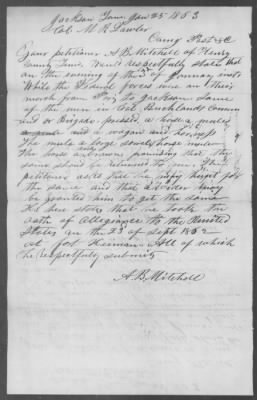 Jackson Tenn Jan 25 1863
Col M K Lawler
Comg Post &c
Your petitioner A. B. Mitchell of Henry
County Tenn. Would respectfully state that
on the evening of the 3d of January inst
While the Federal forces were on their
march from to Jackson Some
of the men in Col Buckland's Comm
and or Brigade pressed a horse a mule
and a wagon and harness
The mule a large sorrel horse mule
The boss at promising that the
same should be returned to me. Your
petitioner asks that he may for
the same and that a order may
be granted him to get the same
He here states that he took the
oath of Allegiance to the United
States on the 23d of Sept 1862
at Fort Heiman. All of which
he respectfully submits
A. B. Mitchell